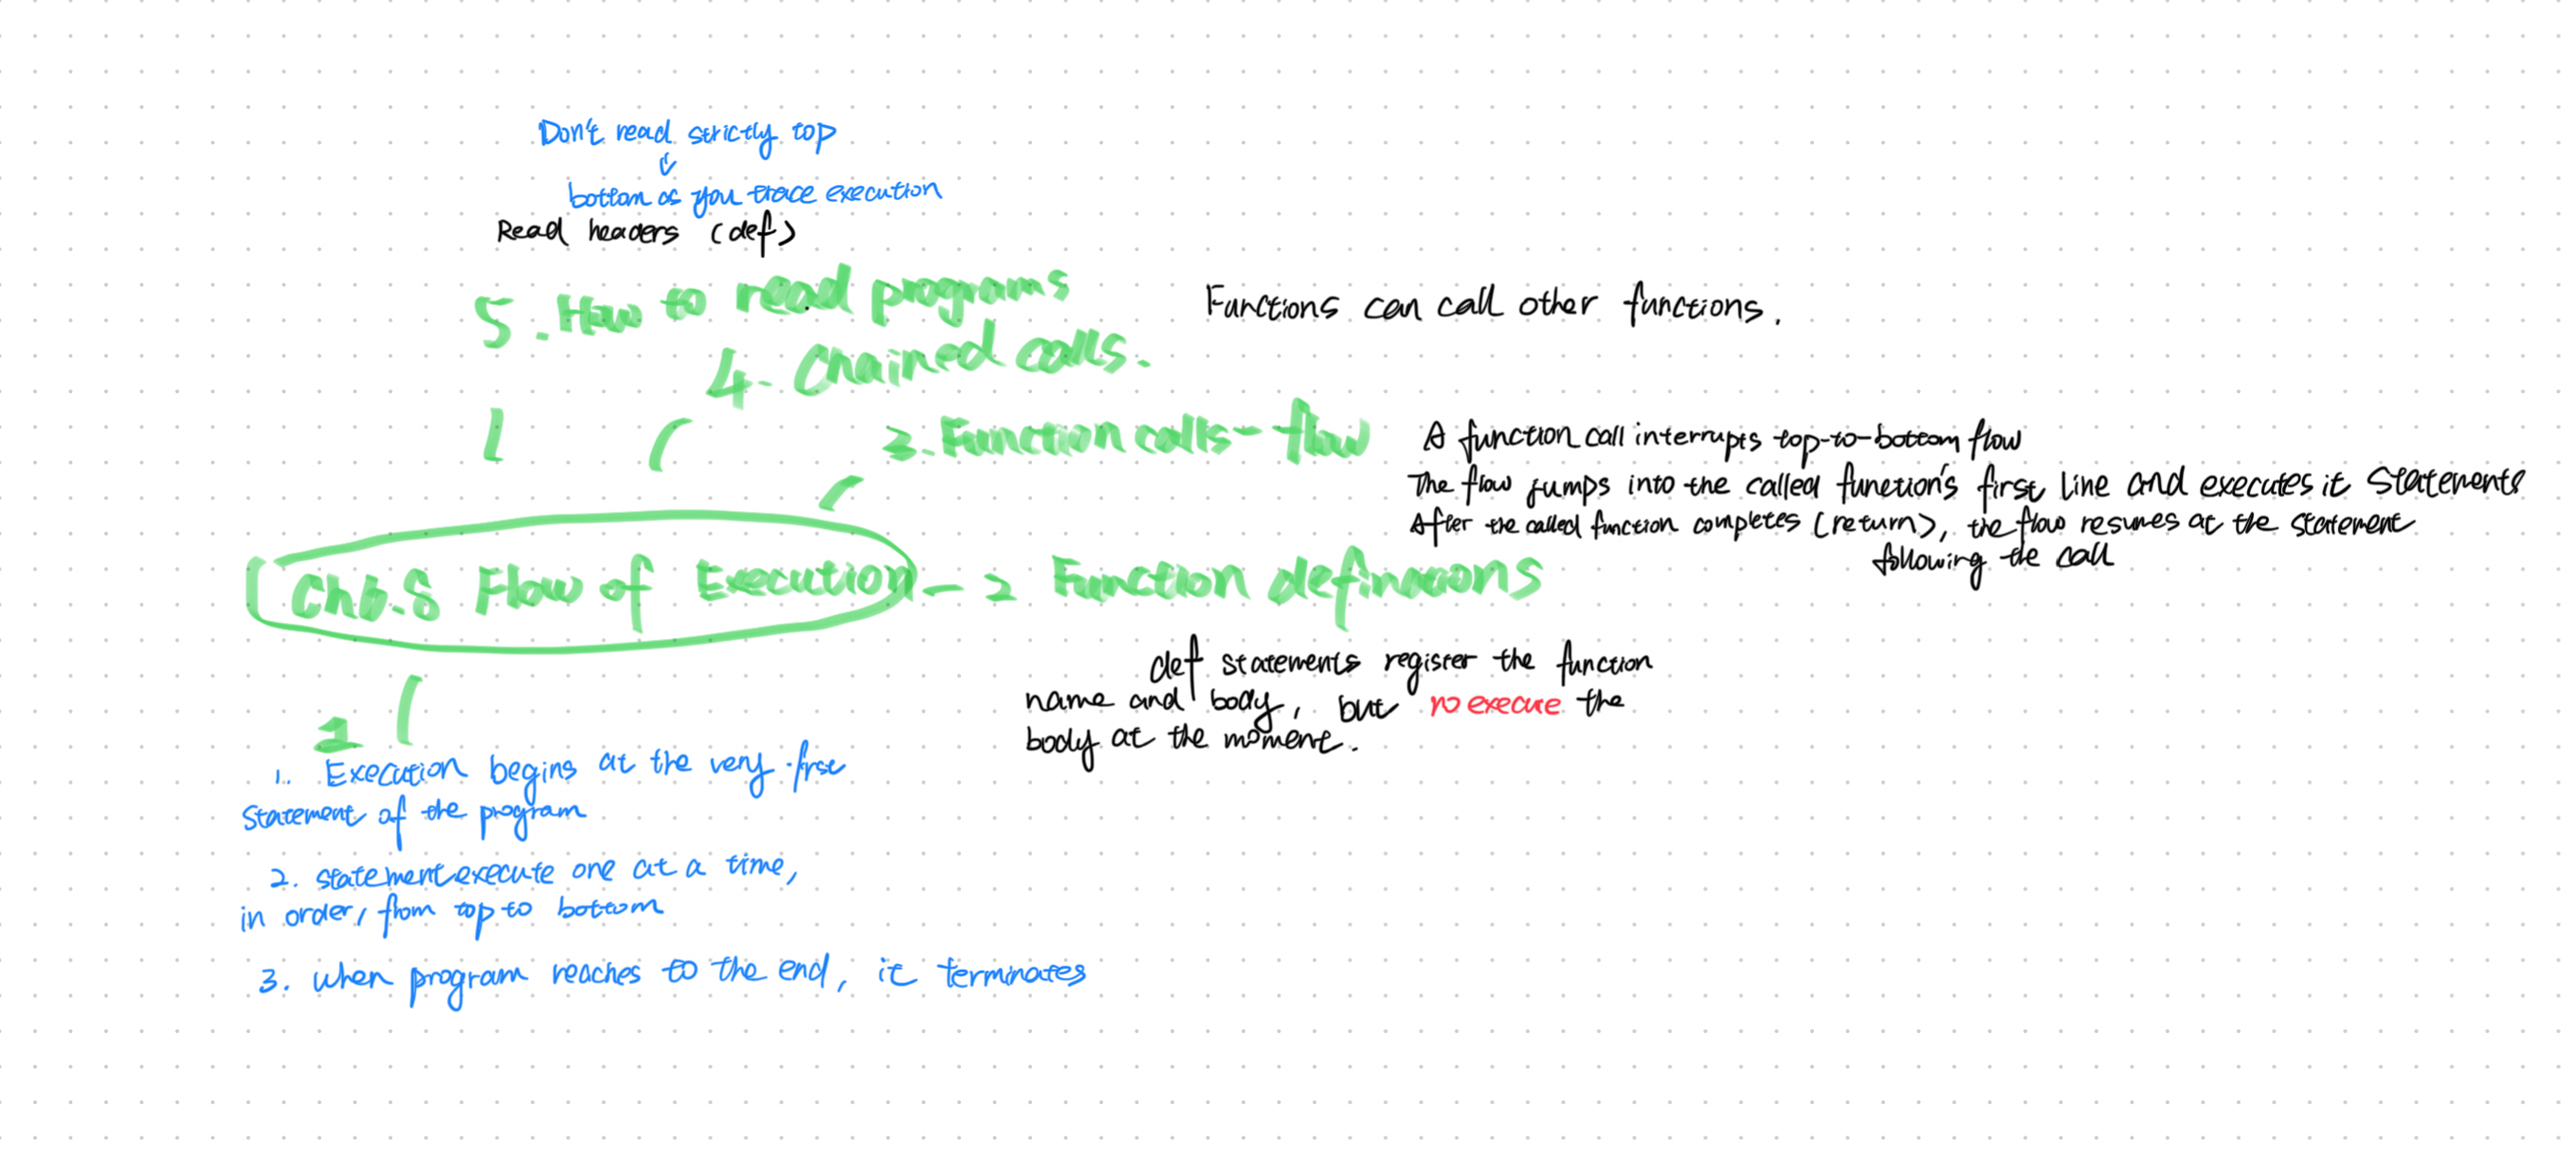 Don't read strictly top
↓
bottom as you trace execution
Read headers (def)
5. How to read programs
Functions can call other functions.
4. Chained calls.
3. Function calls - flow
A function call interrupts top-to-bottom flow
The flow jumps into the called function's first line and executes it statements
After the called function completes (return), the flow resumes at the statement
following the call
Ch6.8 Flow of Execution - 2 Function definaions
def statements register the function
name and body, but no execute the
body at the moment.
1
1. Execution begins at the very first
statement of the program
2. statement execute one at a time,
in order, from top to bottom
3. when program reaches to the end, it terminates